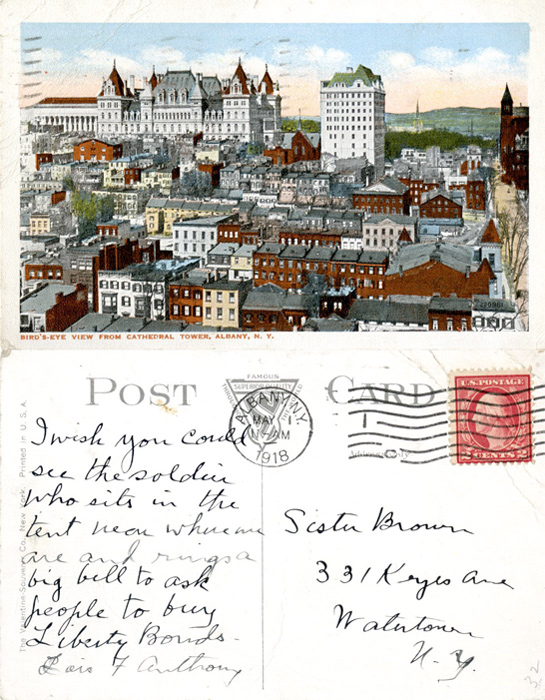 BIRD'S-EYE VIEW FROM CATHEDRAL TOWER, ALBANY, N. Y.
POST CARD
FAMOUS
SUPERIOR QUALITY
ALBANY, N.Y.
MAY 1
AM
1918
U.S. POSTAGE
2 CENTS 2
I wish you could
see the soldier
who sits in the
tent near where we
are and rings a
big bell to ask
people to buy
Liberty Bonds-
Lois F Anthony
Sister Brown
331 Keyes Ave
Watertown
N.Y.
The Valentine-Souvenir Co., New York. Printed in U.S.A.
32